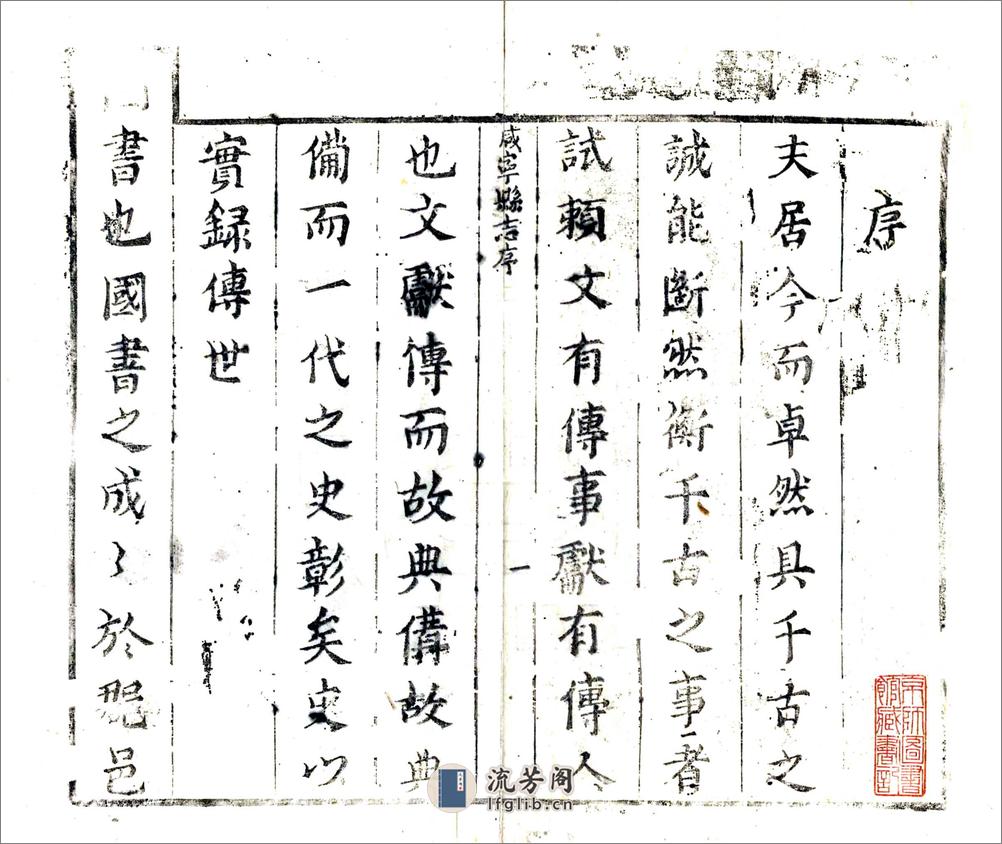 序
夫居今而卓然具千古之
誠能斷然衡千古之事者
試賴文有傳事獻有傳人
咸寧縣志序
一
也文獻傳而故典備故典
備而一代之史彰矣史以
實録傳世
書也國書之成〻於邑
京師圖書
館藏書記
流芳阁
lfglib.cn